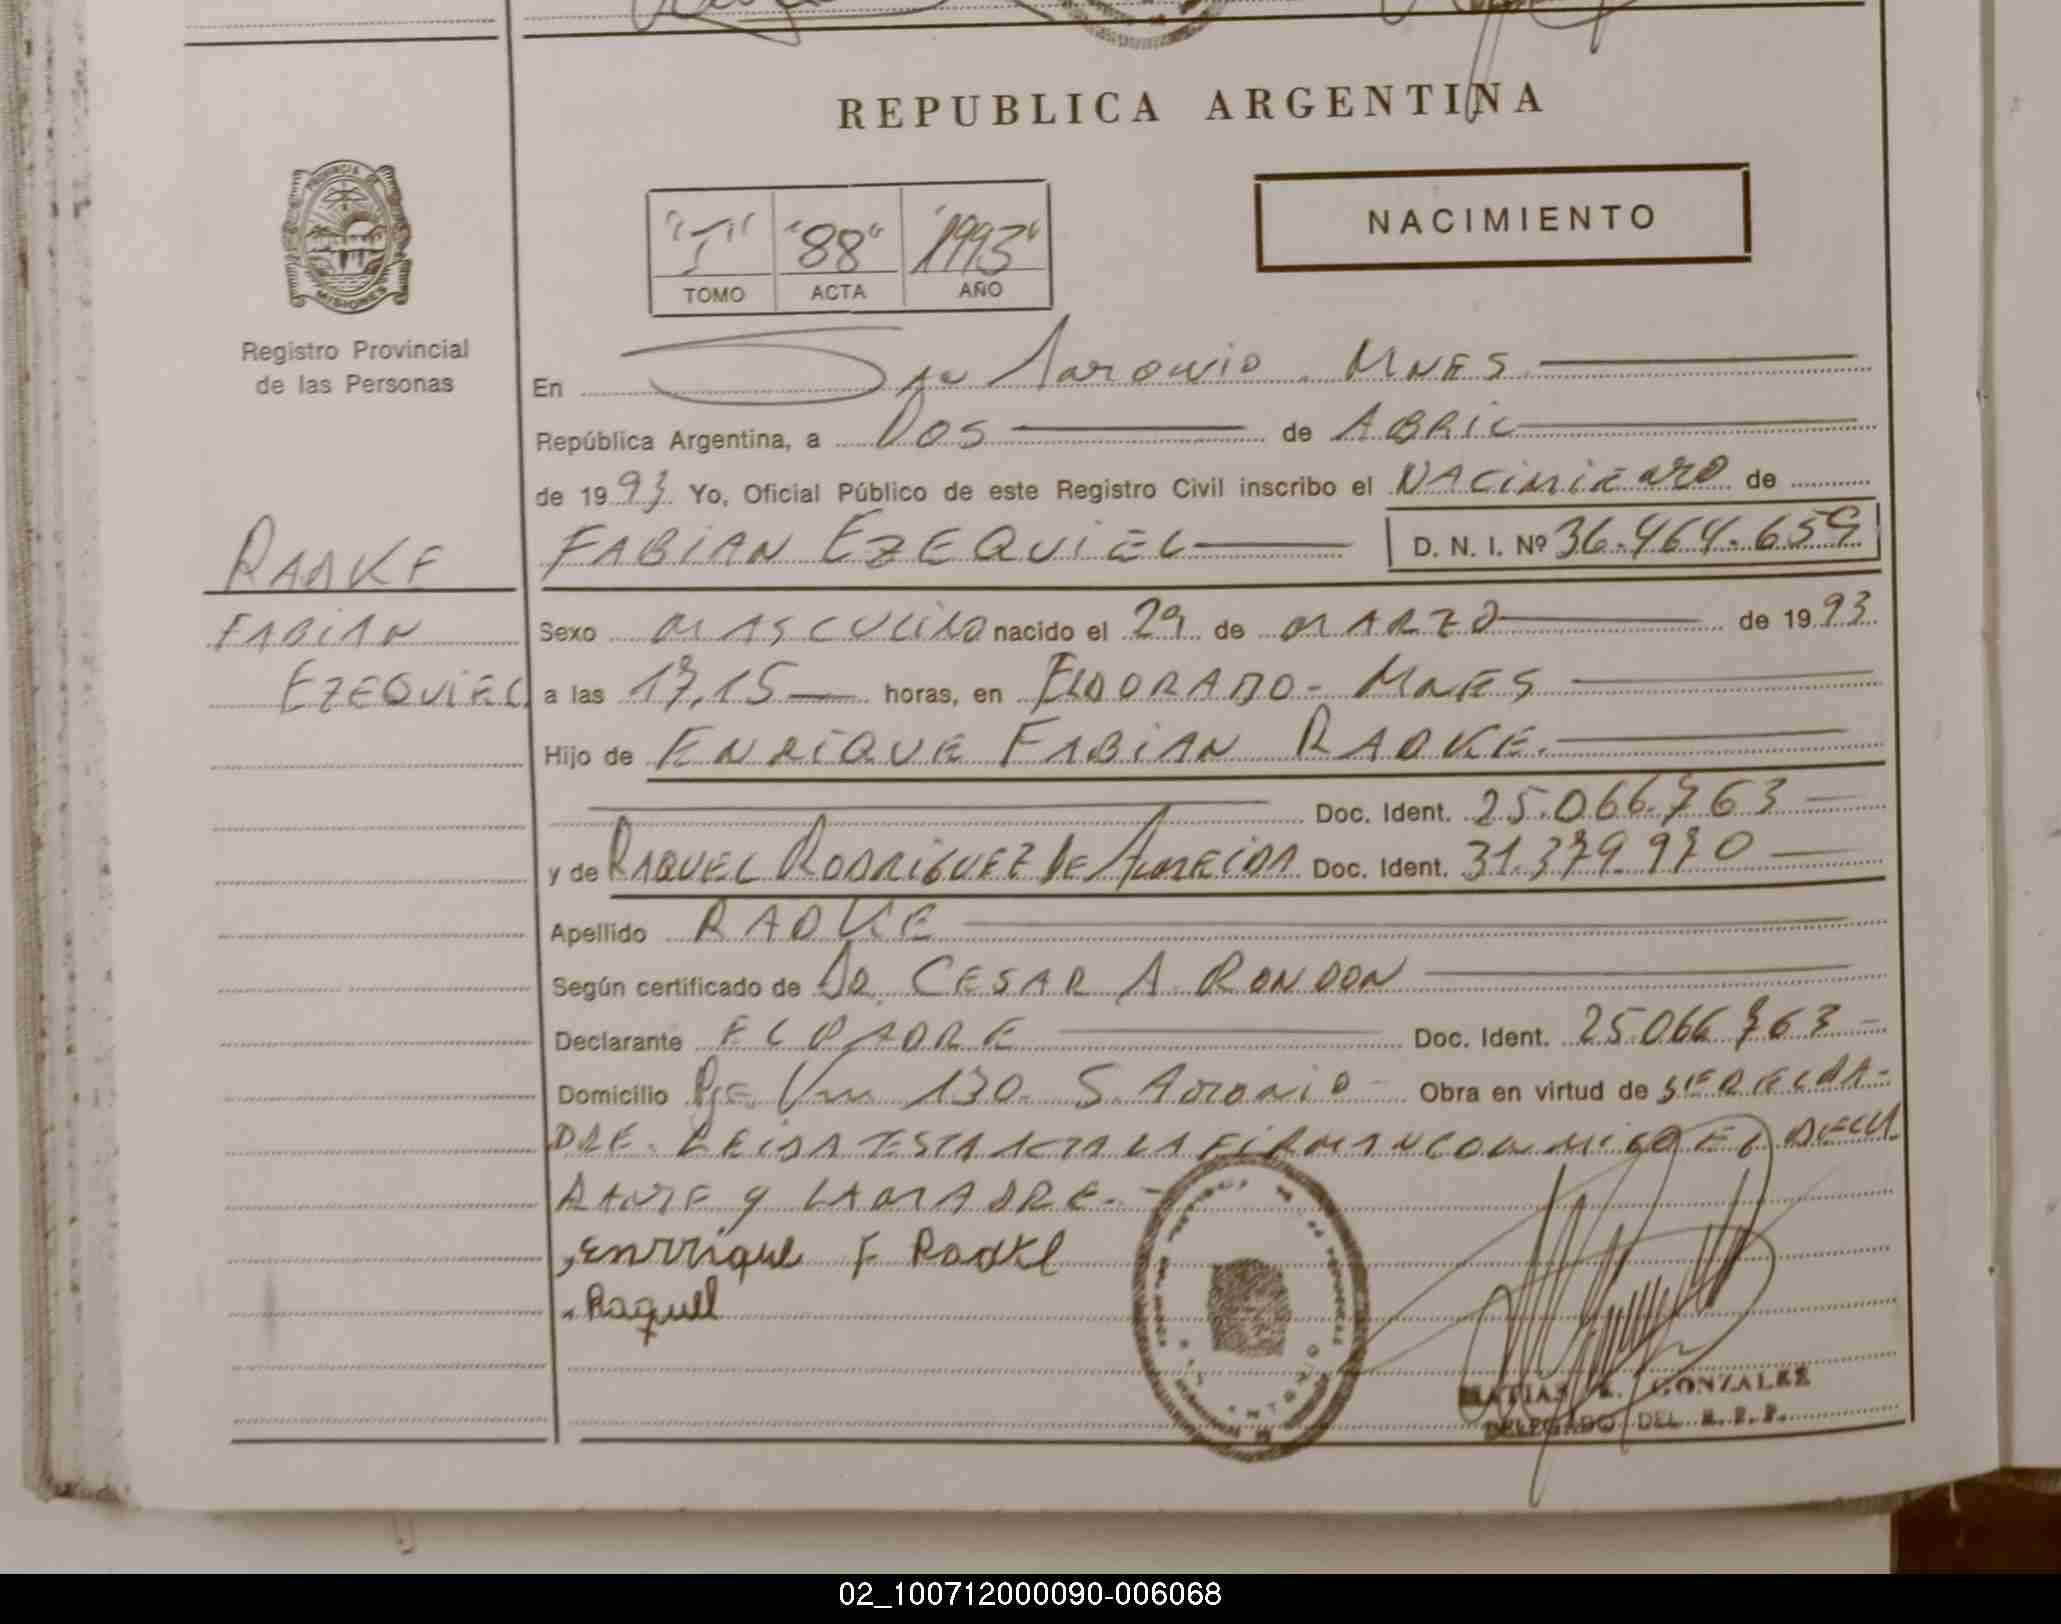 REPUBLICA ARGENTINA
PROVINCIA DE
MISIONES
Registro Provincial
de las Personas
"I" "88" "1993"
TOMO ACTA AÑO
NACIMIENTO
En San Antonio. Mnes
República Argentina, a Dos de ABRIL
de 1993 Yo, Oficial Público de este Registro Civil inscribo el NACimiENTO de
FABIAN EZEQUIEL D. N. I. Nº 36.464.659
RADKE
FABIAN
EZEQUIEL
Sexo MASCULINO nacido el 29 de MARZO de 1993
a las 17,15 horas, en ELDORADO - MNES
Hijo de ENRIQUE FABIAN RADKE.
Doc. Ident. 25.066.763
y de RAQUEL RODRIGUEZ DE ALMEIDA Doc. Ident. 31.379.970
Apellido RADKE
Según certificado de DR. CESAR A. RONDON
Declarante EL PADRE Doc. Ident. 25.066.763
Domicilio Pje 130. S. Antonio - Obra en virtud de SER EL PA-
DRE. LEIDA ESTA ACTA LA FIRMAN CONMIGO EL DECLA
RANTE Y LA MADRE.-
Enrrique F Radke
Raquel
MATIAS GONZALEZ
DELEGADO DEL R. P. P.
02_100712000090-006068